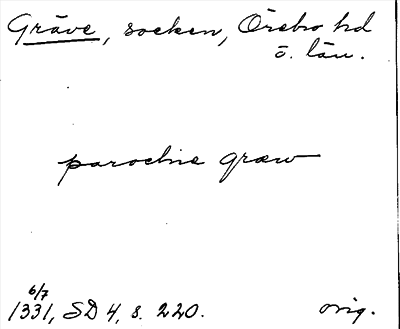 Gräve, socken, Örebro hd
ö. län.
parochie græw
6/7
1331, SD 4, s. 220. orig.